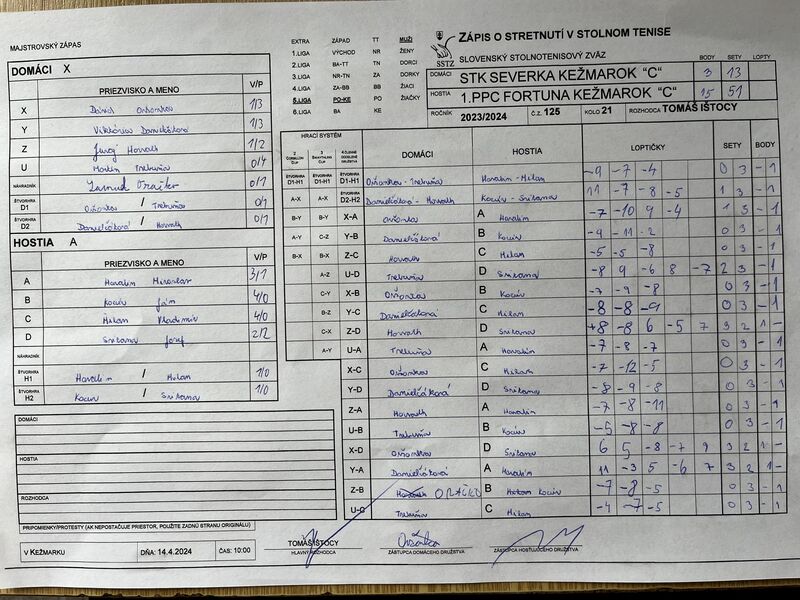 MAJSTROVSKÝ ZÁPAS
DOMÁCI X
PRIEZVISKO A MENO V/P
X 1/3
Y Viktória Danielčáková 1/3
Z Juraj Horvath 1/2
U Martin Trebuňa 0/4
NÁHRADNÍK 0/1
ŠTVORHRA D1 / Trebuňa 0/1
ŠTVORHRA D2 Danielčáková / Horvath 0/1
HOSTIA A
PRIEZVISKO A MENO V/P
A Havalin Miroslav 3/1
B Kocúr Ján 4/0
C Milan Vladimír 4/0
D Jozef 2/2
NÁHRADNÍK
ŠTVORHRA H1 Havalin / Milan 1/0
ŠTVORHRA H2 Kocúr / 1/0
DOMÁCI
HOSTIA
ROZHODCA
PRIPOMIENKY/PROTESTY (AK NEPOSTAČUJE PRIESTOR, POUŽITE ZADNÚ STRANU ORIGINÁLU)
V KEŽMARKU DŇA: 14.4.2024 ČAS: 10:00
EXTRA ZÁPAD TT MUŽI
1.LIGA VÝCHOD NR ŽENY
2.LIGA BA-TT TN DORCI
3.LIGA NR-TN ZA DORKY
4.LIGA ZA-BB BB ŽIACI
5.LIGA PO-KE PO ŽIAČKY
6.LIGA BA KE
SSTZ
ZÁPIS O STRETNUTÍ V STOLNOM TENISE
SLOVENSKÝ STOLNOTENISOVÝ ZVÄZ BODY SETY LOPTY
DOMÁCI STK SEVERKA KEŽMAROK "C" 3 13
HOSTIA 1.PPC FORTUNA KEŽMAROK "C" 15 51
ROČNÍK 2023/2024 Č.Z. 125 KOLO 21 ROZHODCA TOMÁŠ IŠTOCY
HRACÍ SYSTÉM DOMÁCI HOSTIA LOPTIČKY SETY BODY
ŠTVORHRA D1-H1 ŠTVORHRA D1-H1 ŠTVORHRA D1-H1 Trebuňa Havalin - Milan -9 -7 -4 0 3 - 1
A-X A-X ŠTVORHRA D2-H2 Danielčáková - Horvath 11 -7 -8 -5 1 3 - 1
B-Y B-Y X-A A Havalin -7 -10 9 -4 1 3 - 1
A-Y C-Z Y-B Danielčáková B Kocúr -9 -11 -2 0 3 - 1
B-X B-X Z-C Horvath C Milan -5 -5 -8 0 3 - 1
A-Z U-D Trebuňa D -8 9 -6 8 -7 2 3 - 1
C-Y X-B B Kocúr -7 -9 -8 0 3 - 1
B-Z Y-C Danielčáková C Milan -8 -8 -9 0 3 - 1
C-X Z-D Horvath D -8 6 -5 7 3 2 1 -
A-Y U-A Trebuňa A Havalin -7 -8 -7 0 3 - 1
X-C C Milan -7 -12 -5 0 3 - 1
Y-D Danielčáková D -8 -9 -8 0 3 - 1
Z-A Horvath A Havalin -7 -8 -11 0 3 - 1
U-B Trebuňa B Kocúr -5 -8 -8 0 3 - 1
X-D D 6 5 -8 -7 9 3 2 1 -
Y-A Danielčáková A Havalin 11 -3 5 -6 7 3 2 1 -
Z-B B Kocúr -7 -8 -5 0 3 - 1
U-C Trebuňa C Milan -4 -7 -5 0 3 - 1
TOMÁŠ IŠTOCY
HLAVNÝ ROZHODCA ZÁSTUPCA DOMÁCEHO DRUŽSTVA ZÁSTUPCA HOSŤUJÚCEHO DRUŽSTVA